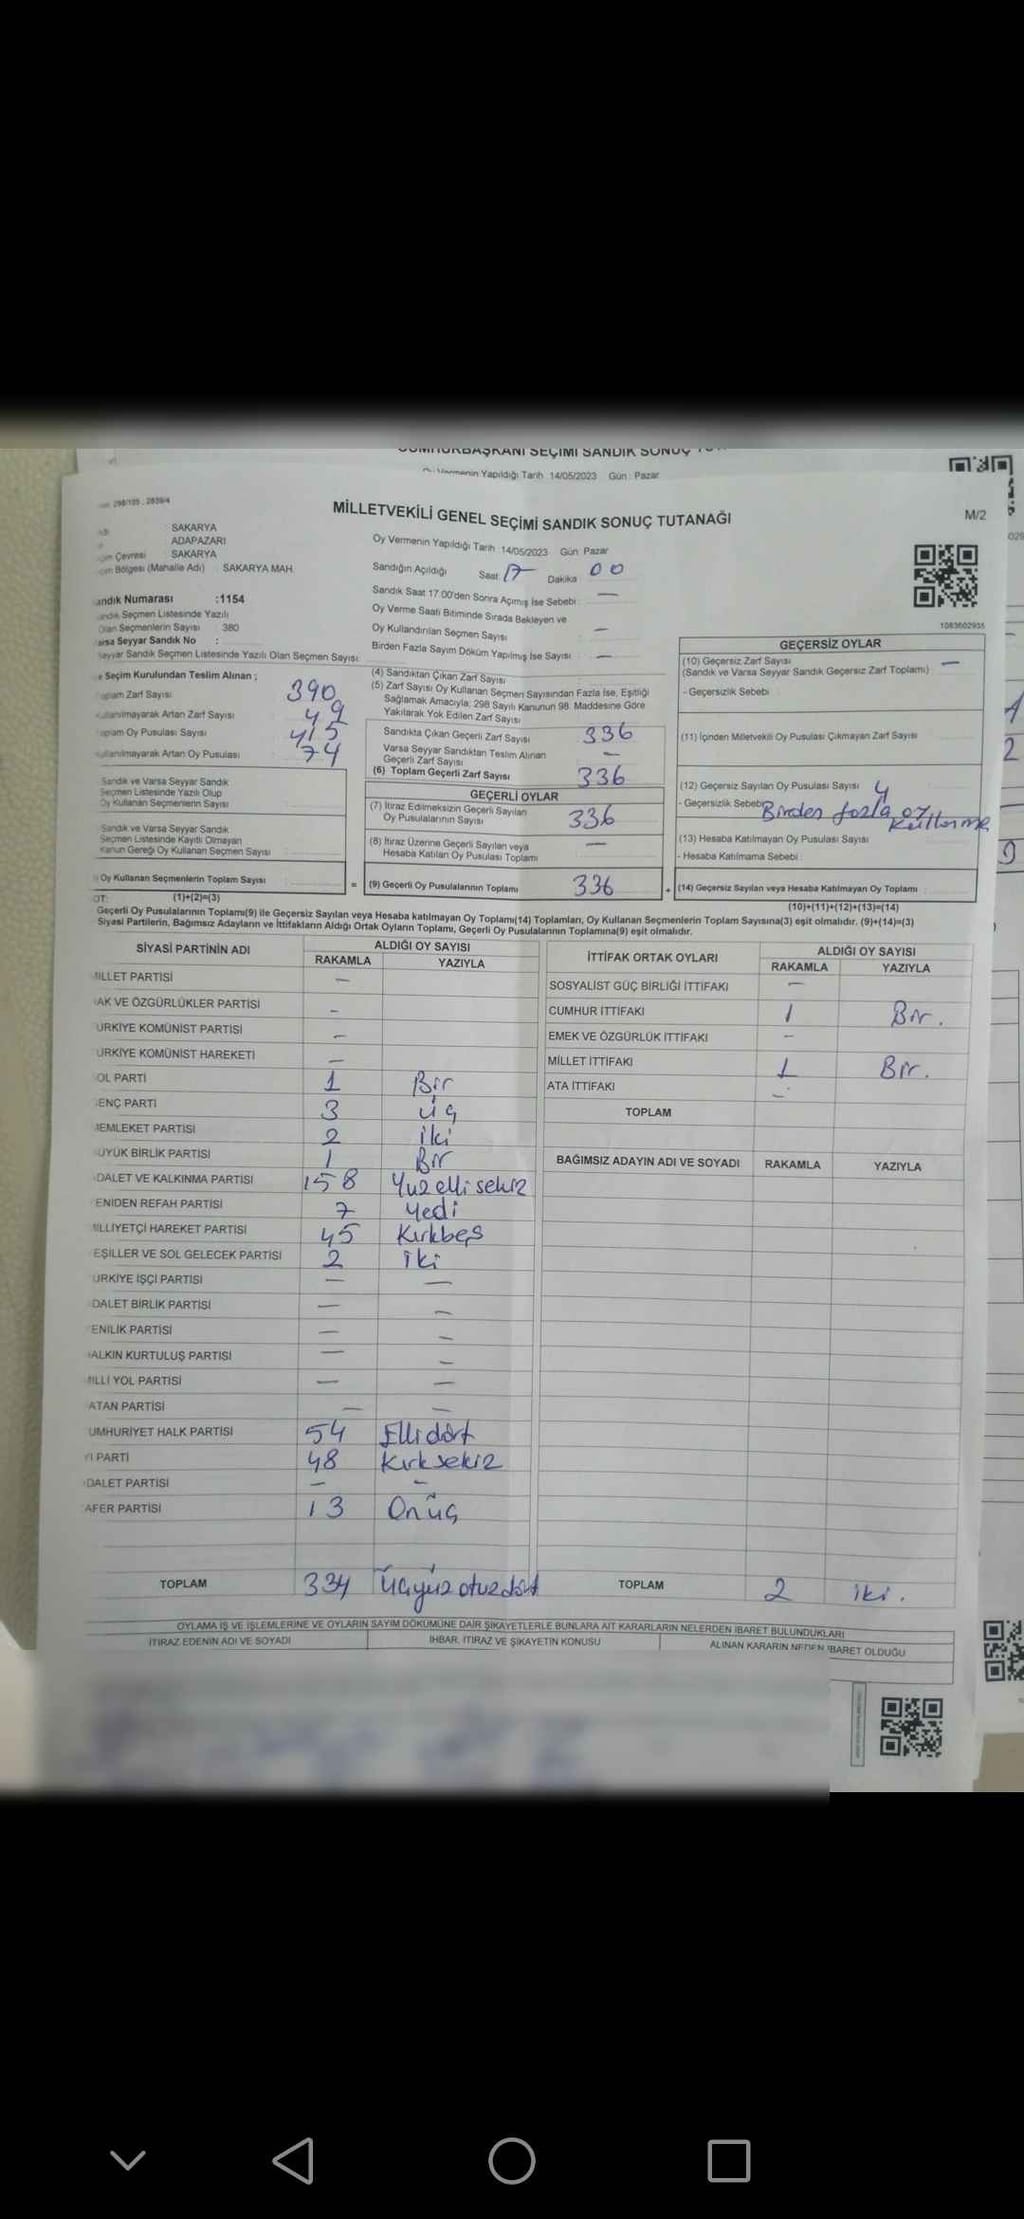 CUMHURBAŞKANI SEÇİMİ SANDIK SONUÇ
Oy Vermenin Yapıldığı Tarih 14/05/2023 Gün : Pazar
MİLLETVEKİLİ GENEL SEÇİMİ SANDIK SONUÇ TUTANAĞI
M/2
SAKARYA
ADAPAZARI
Çevresi SAKARYA
Bölgesi (Mahalle Adı) SAKARYA MAH.
Oy Vermenin Yapıldığı Tarih 14/05/2023 Gün Pazar
Sandığın Açıldığı Saat 17 Dakika 00
Sandık Saat 17.00'den Sonra Açımış İse Sebebi : —
Oy Verme Saati Bitiminde Sırada Bekleyen ve
Oy Kullandırılan Seçmen Sayısı —
Birden Fazla Sayım Döküm Yapılmış İse Sayısı —
1083602935
andık Numarası :1154
Seçmen Listesinde Yazılı
Olan Seçmenlerin Sayısı 380
arsa Seyyar Sandık No :
Seyyar Sandık Seçmen Listesinde Yazılı Olan Seçmen Sayısı:
Seçim Kurulundan Teslim Alınan ;
oplam Zarf Sayısı 390
ullanılmayarak Artan Zarf Sayısı 49
oplam Oy Pusulası Sayısı 415
ullanılmayarak Artan Oy Pusulası 74
Sandık ve Varsa Seyyar Sandık
Seçmen Listesinde Yazılı Olup
Oy Kullanan Seçmenlerin Sayısı
Sandık ve Varsa Seyyar Sandık
Seçmen Listesinde Kayıtlı Olmayan
Kanun Gereği Oy Kullanan Seçmen Sayısı
Oy Kullanan Seçmenlerin Toplam Sayısı
(1)+(2)=(3)
(4) Sandıktan Çıkan Zarf Sayısı
(5) Zarf Sayısı Oy Kullanan Seçmen Sayısından Fazla İse, Eşitliği
Sağlamak Amacıyla; 298 Sayılı Kanunun 98. Maddesine Göre
Yakılarak Yok Edilen Zarf Sayısı
Sandıkta Çıkan Geçerli Zarf Sayısı 336
Varsa Seyyar Sandıktan Teslim Alınan
Geçerli Zarf Sayısı —
(6) Toplam Geçerli Zarf Sayısı 336
GEÇERLİ OYLAR
(7) İtiraz Edilmeksizin Geçerli Sayılan
Oy Pusulalarının Sayısı 336
(8) İtiraz Üzerine Geçerli Sayılan veya
Hesaba Katılan Oy Pusulası Toplamı —
= (9) Geçerli Oy Pusulalarının Toplamı 336 +
GEÇERSİZ OYLAR
(10) Geçersiz Zarf Sayısı
(Sandık ve Varsa Seyyar Sandık Geçersiz Zarf Toplamı) —
- Geçersizlik Sebebi
(11) İçinden Milletvekili Oy Pusulası Çıkmayan Zarf Sayısı
(12) Geçersiz Sayılan Oy Pusulası Sayısı 4
- Geçersizlik Sebebi Birden fazla oy
kullanma
(13) Hesaba Katılmayan Oy Pusulası Sayısı
- Hesaba Katılmama Sebebi :
(14) Geçersiz Sayılan veya Hesaba Katılmayan Oy Toplamı
(10)+(11)+(12)+(13)=(14)
Geçerli Oy Pusulalarının Toplamı(9) ile Geçersiz Sayılan veya Hesaba katılmayan Oy Toplamı(14) Toplamları, Oy Kullanan Seçmenlerin Toplam Sayısına(3) eşit olmalıdır. (9)+(14)=(3)
Siyasi Partilerin, Bağımsız Adayların ve İttifakların Aldığı Ortak Oyların Toplamı, Geçerli Oy Pusulalarının Toplamına(9) eşit olmalıdır.
SİYASİ PARTİNİN ADI ALDIĞI OY SAYISI
RAKAMLA YAZIYLA
MİLLET PARTİSİ —
AK VE ÖZGÜRLÜKLER PARTİSİ —
ÜRKİYE KOMÜNİST PARTİSİ —
ÜRKİYE KOMÜNİST HAREKETİ —
OL PARTİ 1 Bir
ENÇ PARTİ 3 Üç
EMLEKET PARTİSİ 2 iki
ÜYÜK BİRLİK PARTİSİ 1 Bir
DALET VE KALKINMA PARTİSİ 158 Yüzellisekiz
ENİDEN REFAH PARTİSİ 7 Yedi
İLLİYETÇİ HAREKET PARTİSİ 45 Kırkbeş
EŞİLLER VE SOL GELECEK PARTİSİ 2 İki
ÜRKİYE İŞÇİ PARTİSİ — —
DALET BİRLİK PARTİSİ — —
ENİLİK PARTİSİ — —
ALKIN KURTULUŞ PARTİSİ — —
MİLLİ YOL PARTİSİ — —
ATAN PARTİSİ — —
UMHURİYET HALK PARTİSİ 54 Ellidört
Yİ PARTİ 48 Kırksekiz
DALET PARTİSİ — —
AFER PARTİSİ 13 Onüç
TOPLAM 334 Üçyüzotuzdört
İTTİFAK ORTAK OYLARI ALDIĞI OY SAYISI
RAKAMLA YAZIYLA
SOSYALİST GÜÇ BİRLİĞİ İTTİFAKI —
CUMHUR İTTİFAKI 1 Bir.
EMEK VE ÖZGÜRLÜK İTTİFAKI —
MİLLET İTTİFAKI 1 Bir.
ATA İTTİFAKI —
TOPLAM
BAĞIMSIZ ADAYIN ADI VE SOYADI RAKAMLA YAZIYLA
TOPLAM 2 iki.
OYLAMA İŞ VE İŞLEMLERİNE VE OYLARIN SAYIM DÖKÜMÜNE DAİR ŞİKAYETLERLE BUNLARA AİT KARARLARIN NELERDEN İBARET BULUNDUKLARI
İTİRAZ EDENİN ADI VE SOYADI İHBAR, İTİRAZ VE ŞİKAYETİN KONUSU ALINAN KARARIN NEDEN İBARET OLDUĞU